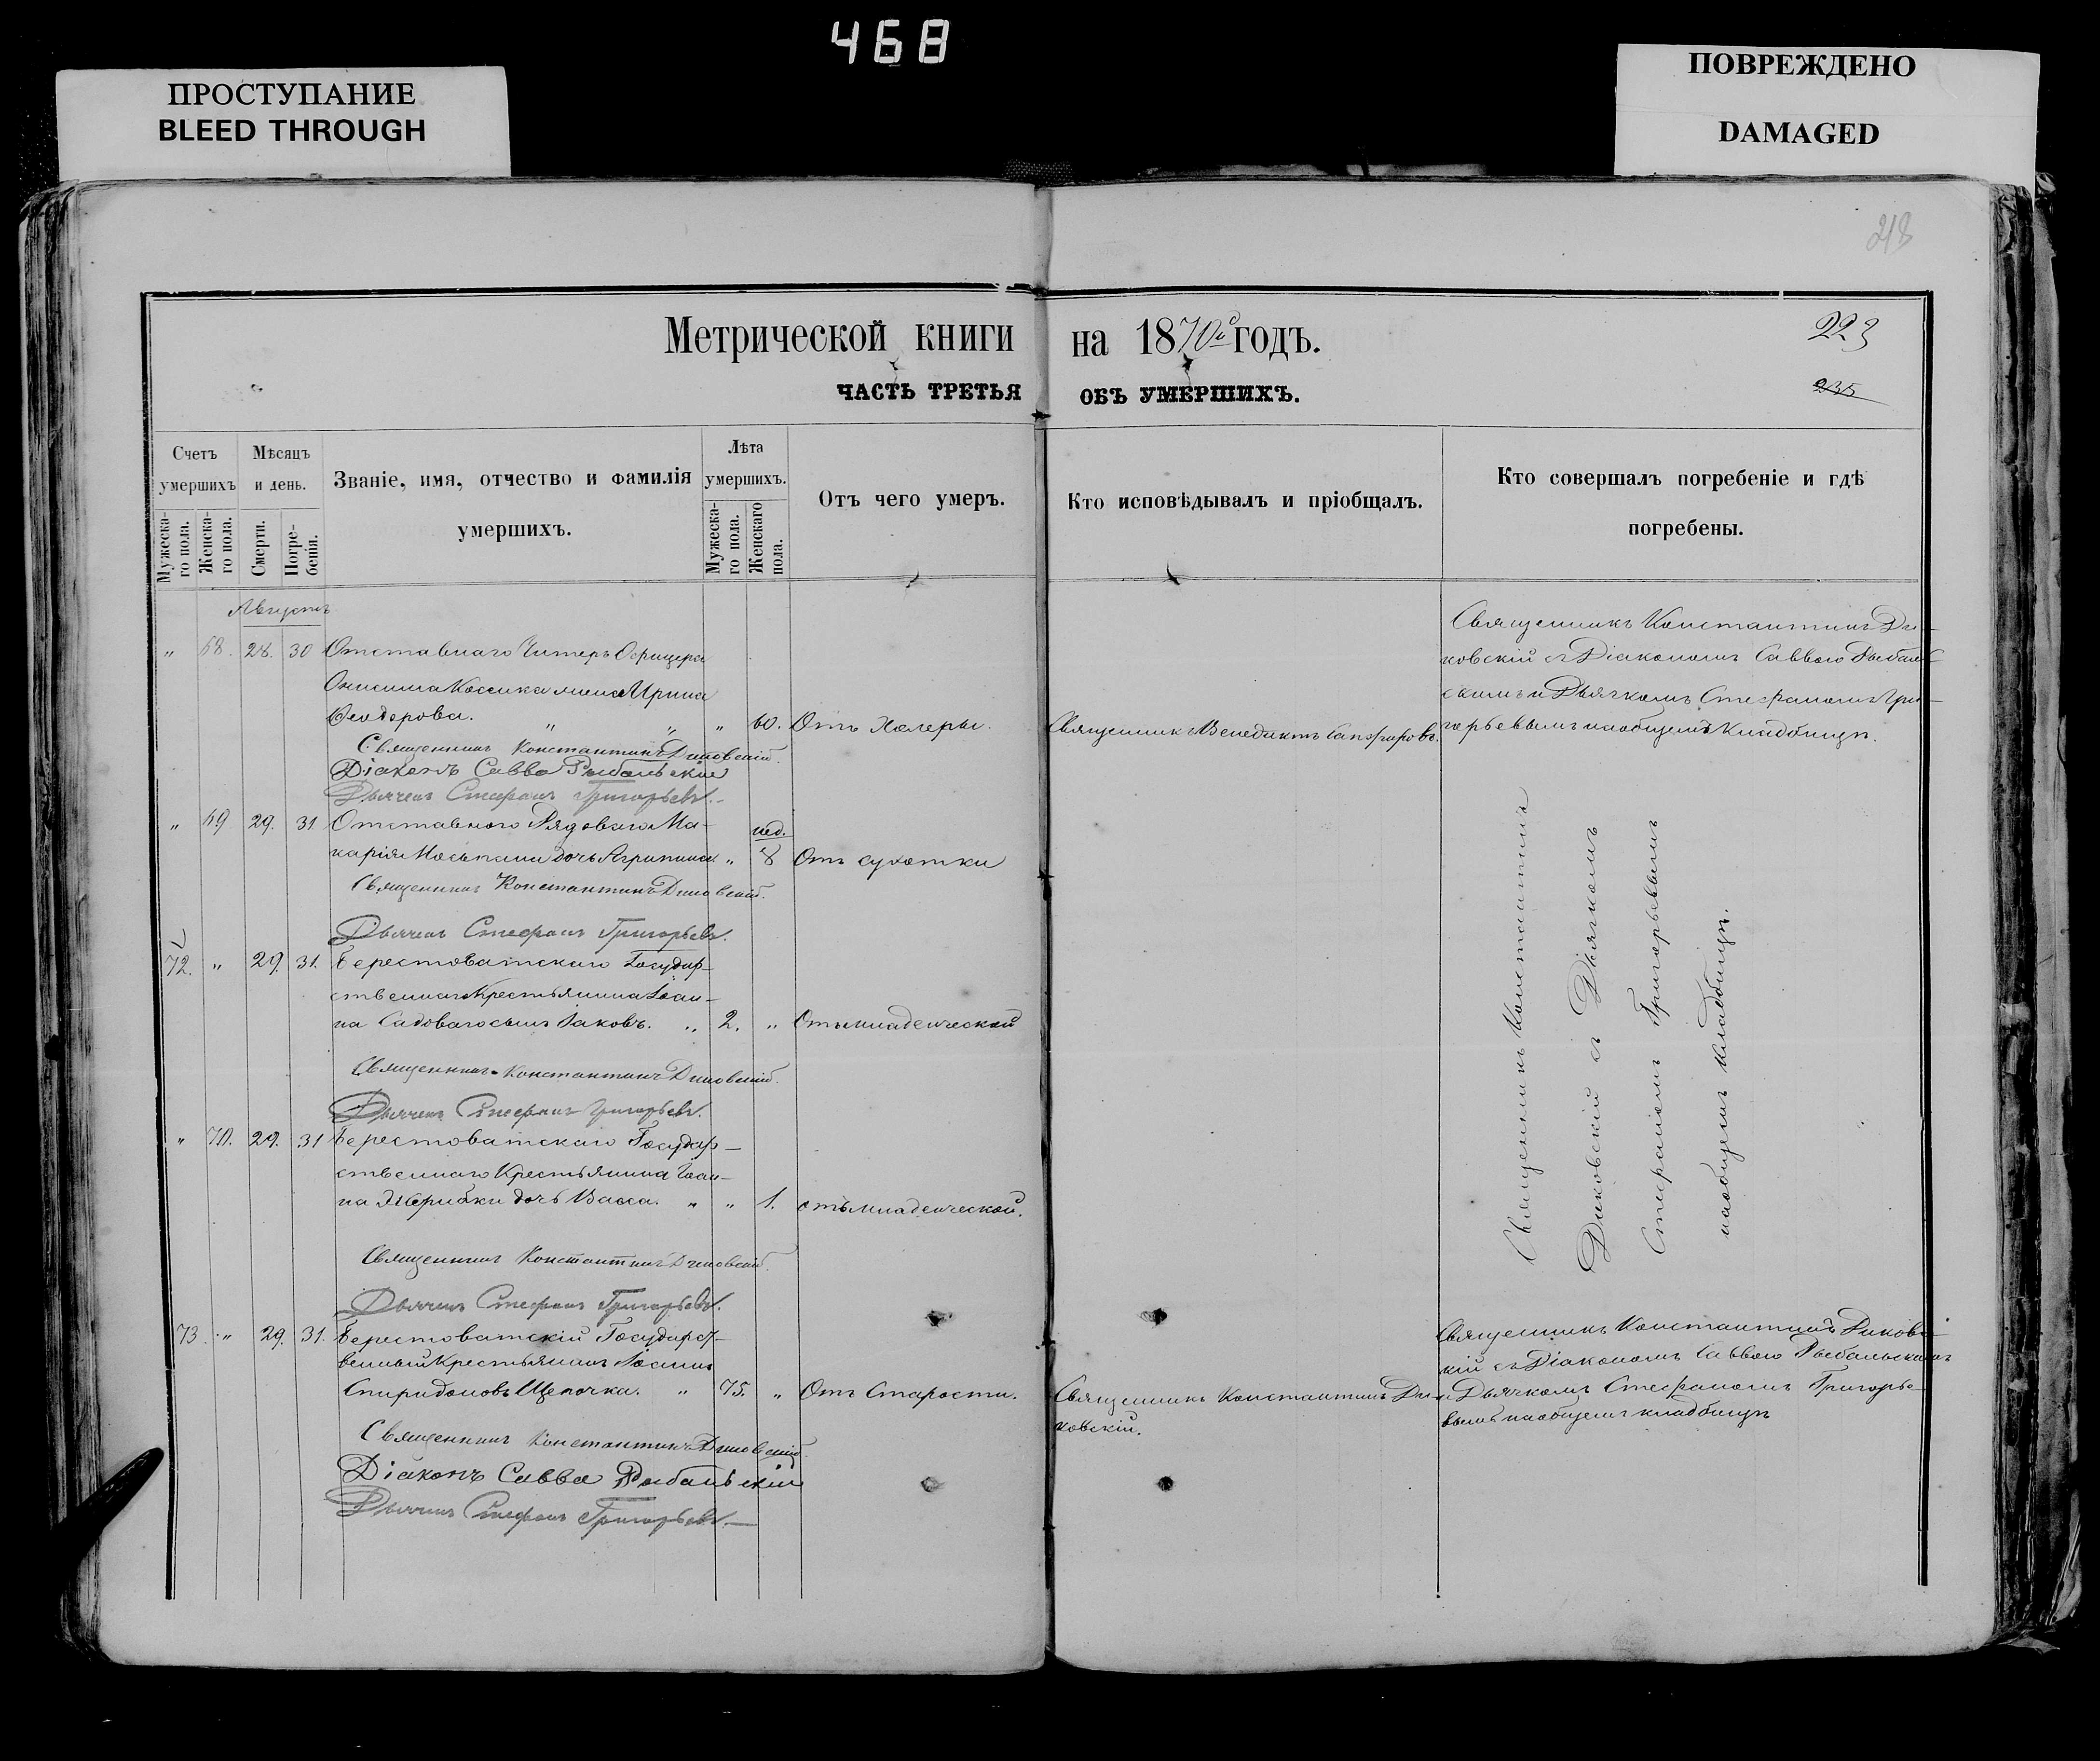 468
ПРОСТУПАНИЕ
BLEED THROUGH
ПОВРЕЖДЕНО
DAMAGED
218
Метрической книги на 1870й годъ.
223
ЧАСТЬ ТРЕТЬЯ ОБЪ УМЕРШИХЪ.
235
Счетъ умершихъ
Мужеска-го пола.
Женска-го пола.
Мѣсяцъ и день.
Смерти.
Погре-бенія.
Званіе, имя, отчество и фамилія умершихъ.
Лѣта умершихъ.
Мужеска-го пола.
Женскаго пола.
Отъ чего умеръ.
Кто исповѣдывалъ и пріобщалъ.
Кто совершалъ погребеніе и гдѣ погребены.
Августъ
" 68. 28. 30 Отставнаго Унтеръ Офицера
Онисима Коссика жена Ирина
Феодорова. " " " 60. Отъ Холеры.
Священникъ Венедиктъ Сапфировъ.
Священникъ Константинъ Ди-
ковскій съ Діакономъ Саввою Рыбаль-
скимъ и Дьячкомъ Стефаномъ Гри-
горьевымъ на общемъ Кладбищѣ.
Священникъ Константинъ Диковскій.
Діаконъ Савва Рыбальскій
Дьячекъ Стефанъ Григорьевъ.
" 69 29. 31 Отставного Рядоваго Ма-
карія Мосьпана дочь Агрипина " нед. 8 Отъ сухотки
Священникъ Константинъ Диковскій.
Дьячекъ Стефанъ Григорьевъ.
72. " 29. 31. Берестоватскаго Государ-
ственнаго Крестьянина Іоан-
на Садоваго сынъ Іаковъ. " 2. " Отъ младенческой
Священникъ Константинъ Диковскій.
Дьячекъ Стефанъ Григорьевъ.
" 70. 29. 31 Берестоватскаго Государ-
ственнаго Крестьянина Іоан-
на дочь Васса. " " 1. отъ младенческой.
Священникъ Константинъ Диковскій.
Дьячекъ Стефанъ Григорьевъ.
Священникъ Константинъ
Диковскій съ Дьячкомъ
Стефаномъ Григорьевымъ
на общемъ кладбищѣ.
73. " 29. 31. Берестоватскій Государст-
венный Крестьянинъ Іоаннъ
Спиридоновъ Щепочка. " 75. " Отъ Старости.
Священникъ Константинъ Ди-
ковскій.
Священникъ Константинъ Диковс-
кій съ Діакономъ Саввою Рыбальскимъ
и Дьячкомъ Стефаномъ Григорье-
вымъ на общемъ кладбищѣ
Священникъ Константинъ Диковскій.
Діаконъ Савва Рыбальскій
Дьячекъ Стефанъ Григорьевъ.